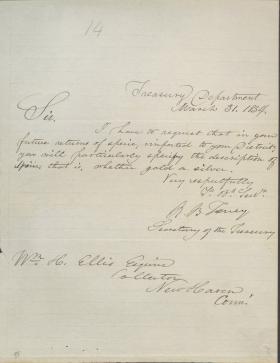 14
Treasury Department
March 31. 1834.
Sir,
I have to request that in your
future returns of specie, imported to your District,
you will particularly specify the description of
Specie; that is, whether gold or silver.
Very respectfully
Yr. Ob. Servt.
R B Taney
Secretary of the Treasury
Wm. H. Ellis Esquire
Collector
New Haven
Conn.